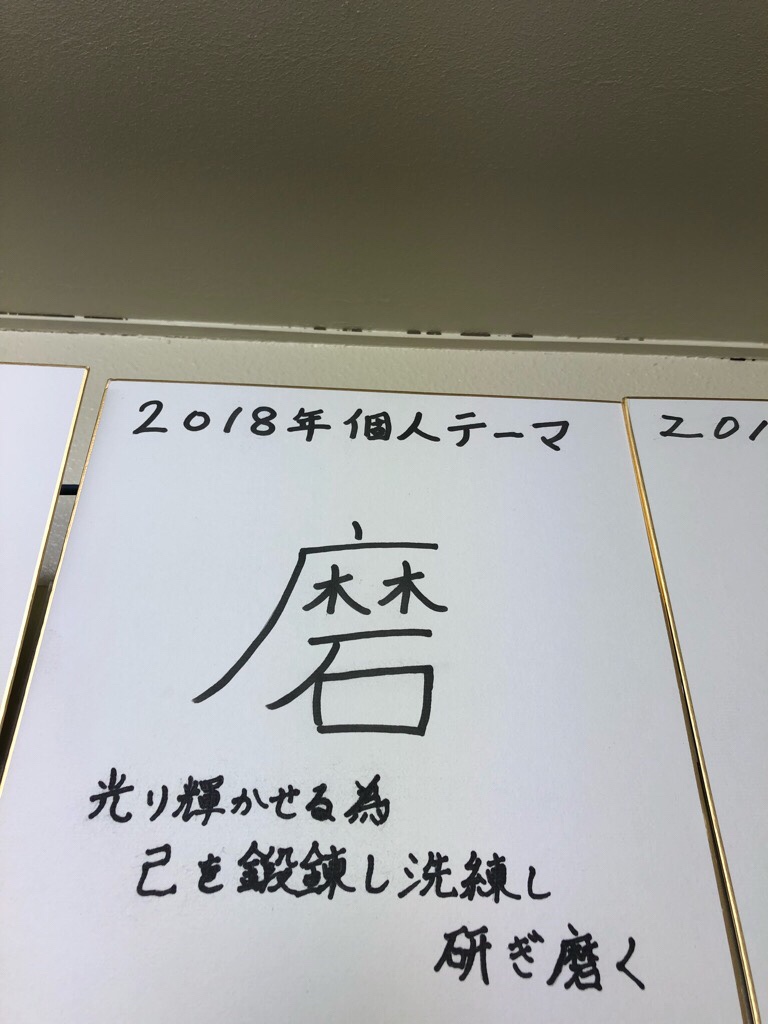 2018年 個人テーマ
磨
光り輝かせる為
己を鍛錬し洗練し
研ぎ磨く
201